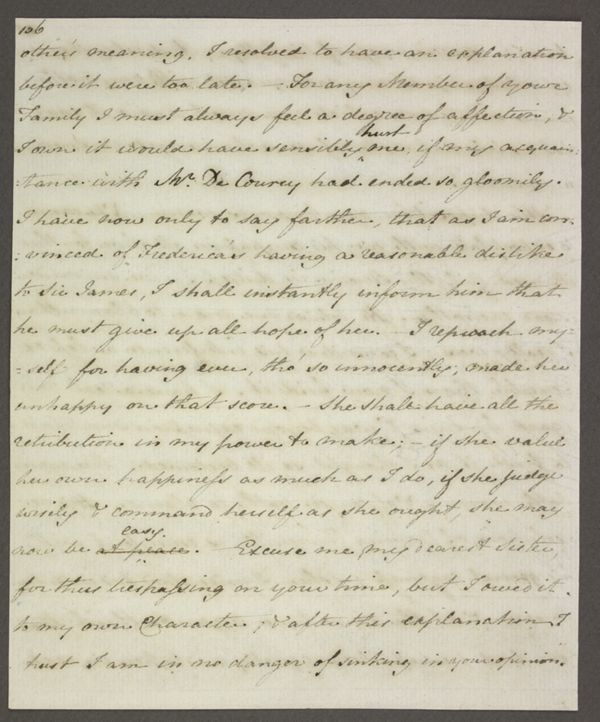 106
other's meaning, I resolved to have an explanation
before it were too late. — For any Member of your
Family I must always feel a degree of affection, &
hurt
I own it would have sensibly me, if my acquain:
:tance with Mr. De Courcy had ended so gloomily.
I have now only to say farther, that as I am con:
:vinced of Frederica's having a reasonable dislike
to Sir James, I shall instantly inform him that
he must give up all hope of her. — I reproach my=
=self for having ever, tho' so innocently, made her
unhappy on that score. — She shall have all the
retribution in my power to make; — if she value
her own happiness as much as I do, if she judge
wisely & command herself as she ought, she may
easy.
now be at peace. — Excuse me, my dearest Sister,
for thus trespassing on your time, but I owed it
to my own Character; & after this explanation I
trust I am in no danger of sinking in your opinion.